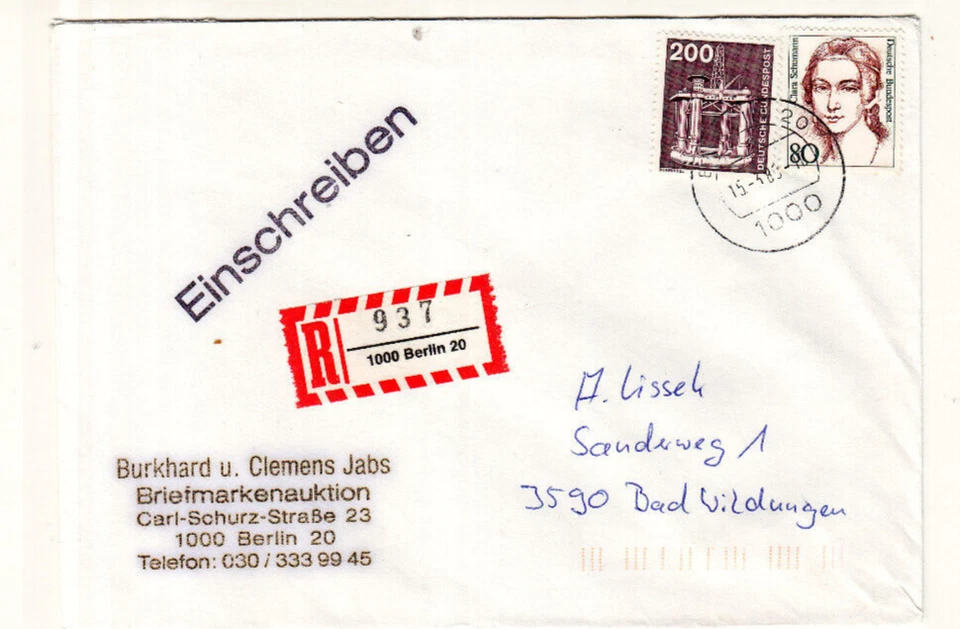 200
DEUTSCHE BUNDESPOST
Clara Schumann
Deutsche Bundespost
80
20
1000
Einschreiben
R
937
1000 Berlin 20
A. Lissek
Sanderweg 1
3590 Bad Wildungen
Burkhard u. Clemens Jabs
Briefmarkenauktion
Carl-Schurz-Straße 23
1000 Berlin 20
Telefon: 030 / 333 99 45